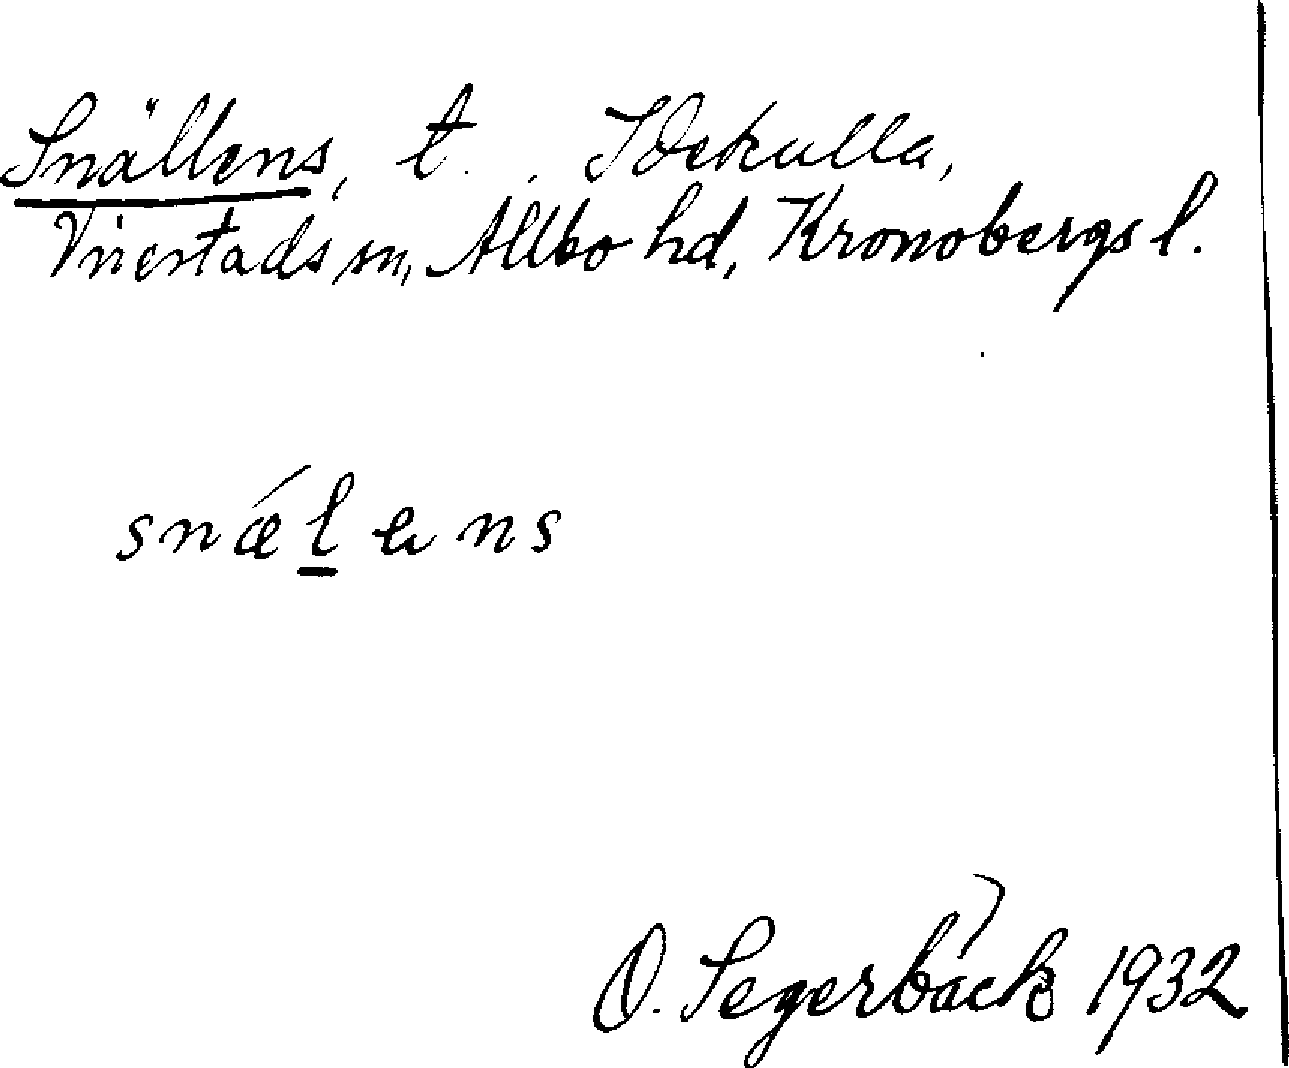 Snällens, t. Idekulla,
Virestads sn, Allbo hd, Kronobergs l.
snǽl̲ens
O. Segerbäck 1932